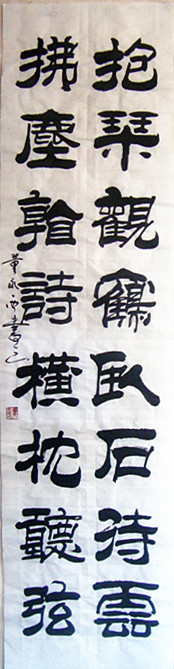 抱琴觀鶴臥石待雲
拂塵詩橫枕聽弦